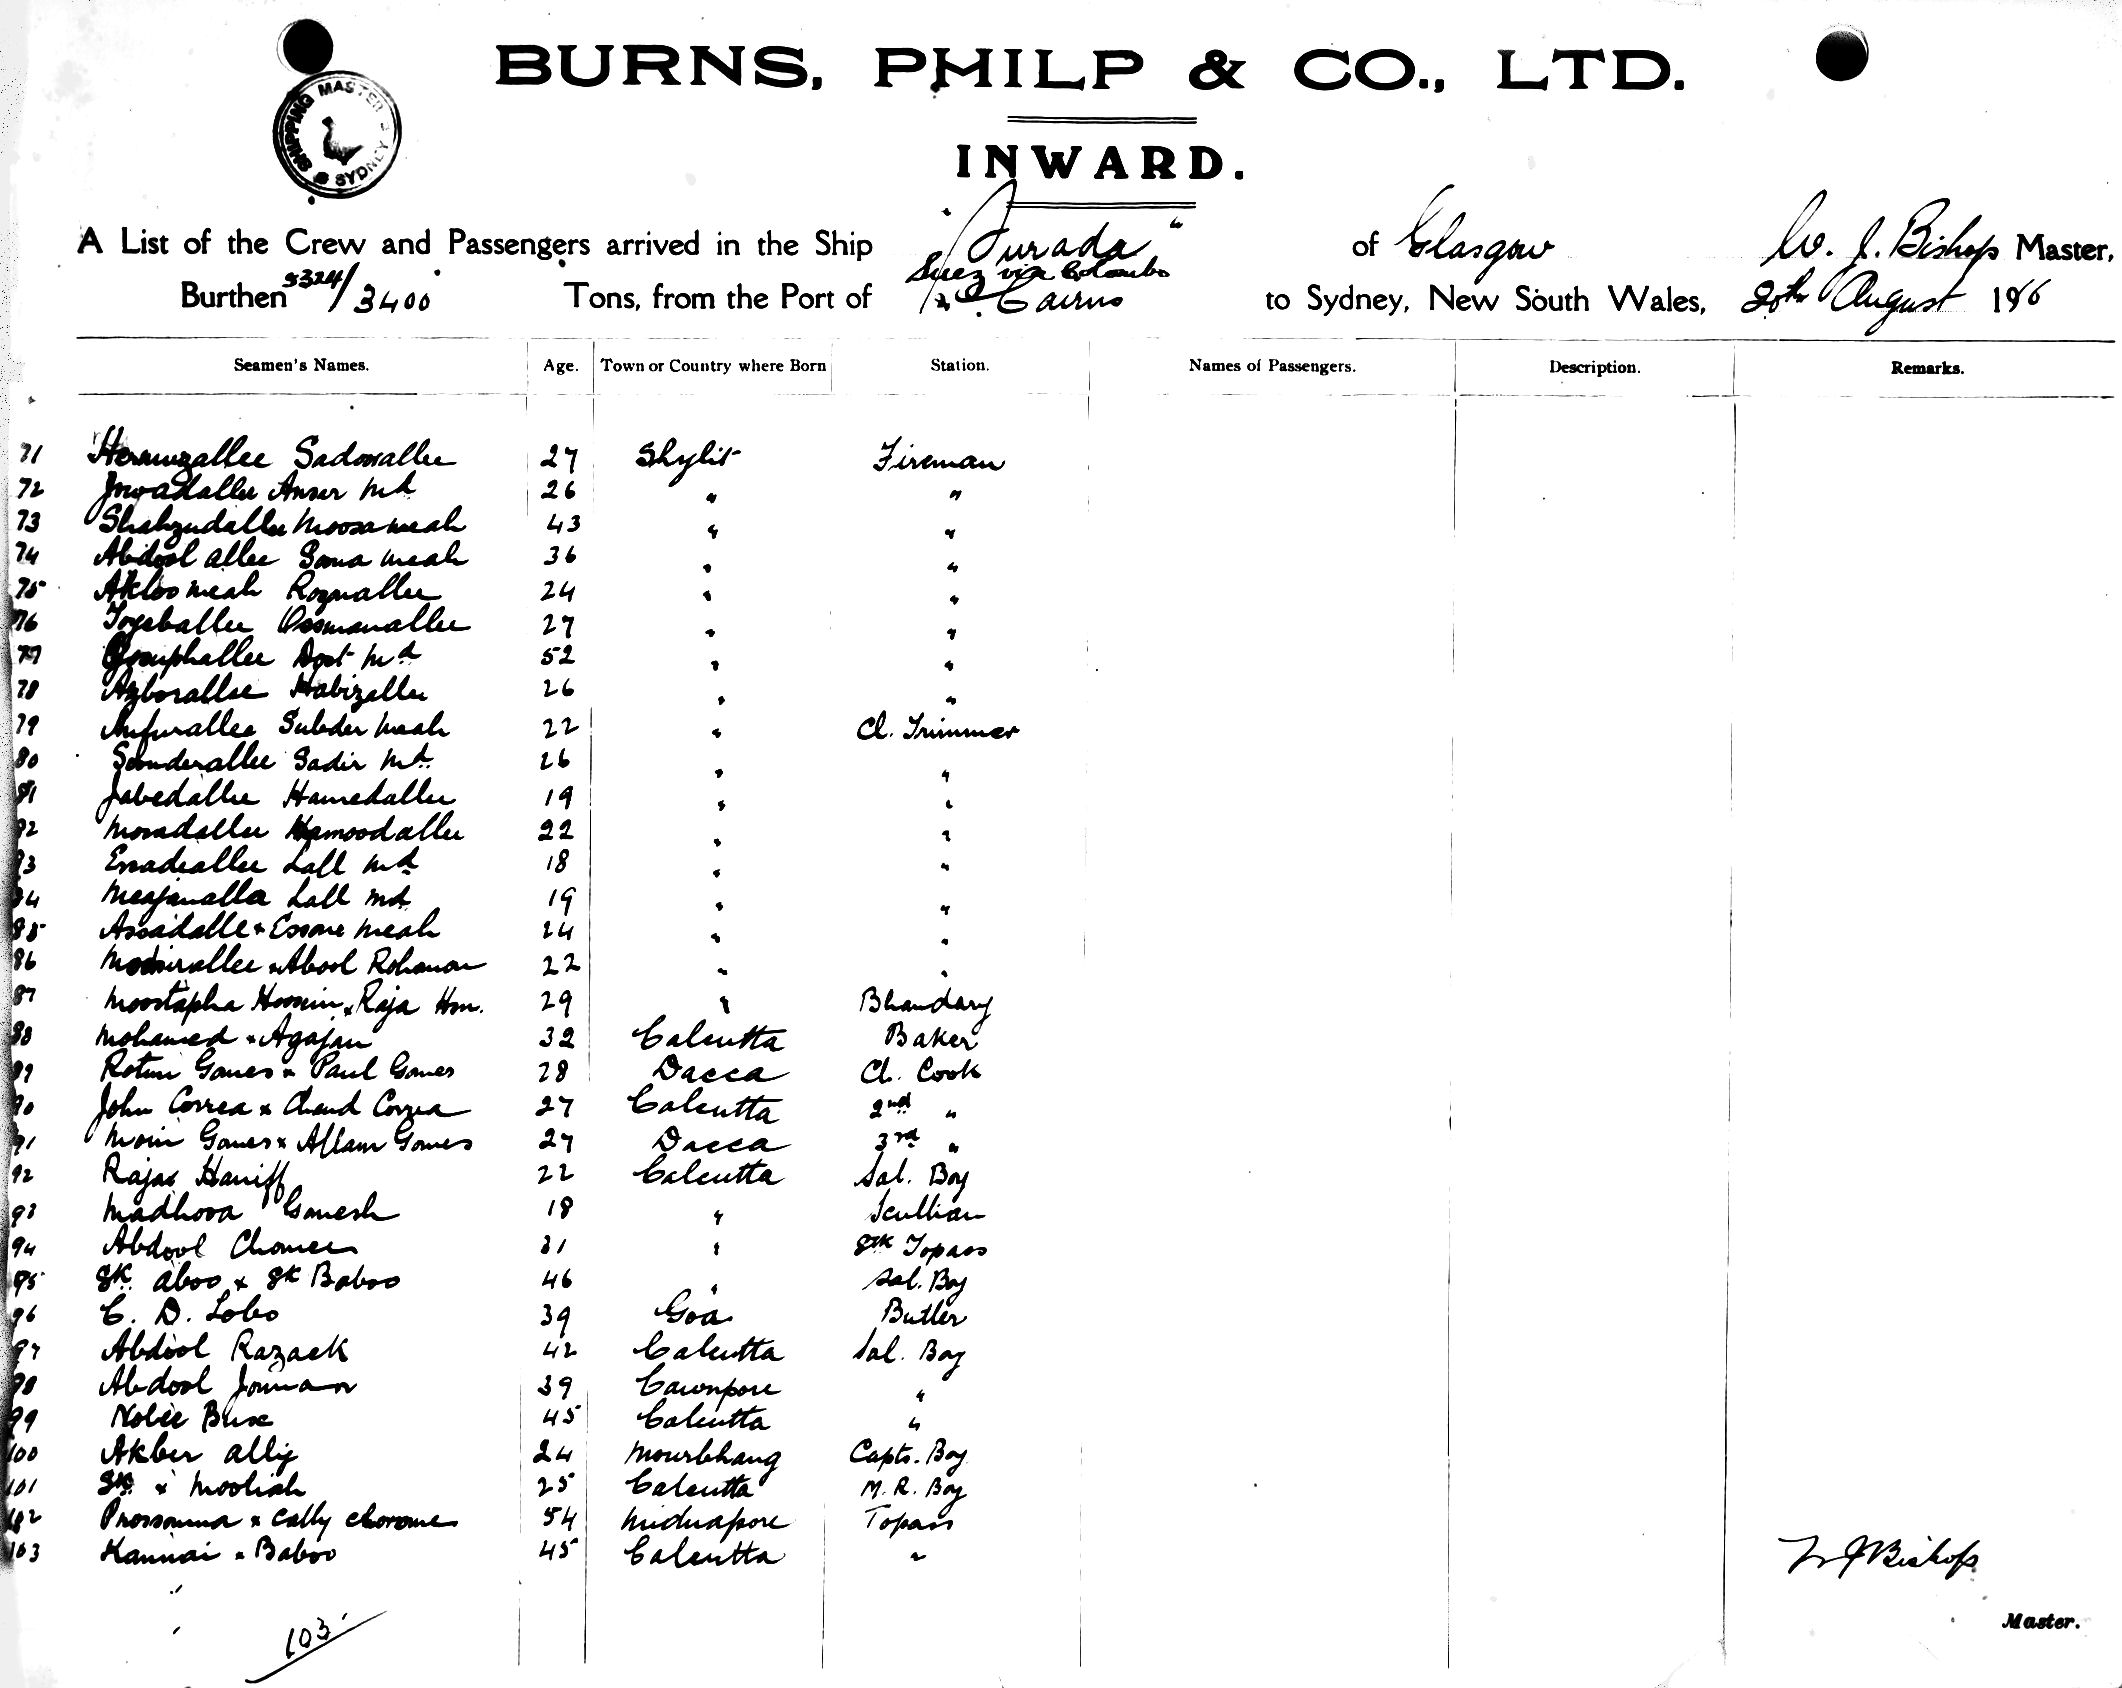 BURNS, PHILP & CO., LTD.
SHIPPING MASTER SYDNEY
INWARD.
A List of the Crew and Passengers arrived in the Ship "Jurada" of Glasgow W. J. Bishop Master,
Suez via Colombo
Burthen 5324/3400 Tons, from the Port of & Cairns to Sydney, New South Wales, 20th August 1916
Seamen's Names. Age. Town or Country where Born Station. Names of Passengers. Description. Remarks.
71 Sadowallee 27 Shylit Fireman
72 Jowadallee Anser Md 26 " "
73 Moosa meah 43 " "
74 Abdool allee Sona meah 36 " "
75 Akloo meah Rozwallee 24 " "
76 Toyeballee Ossmanallee 27 " "
77 Dost Md 52 " "
78 Azborallee Habizallee 26 " "
79 Subder meah 22 " Cl. Trimmer
80 Sunderallee Sadir Md. 26 " "
81 Jabedallee Hamedallee 19 " "
82 Moradallee Hamoodallee 22 " "
83 Lall Md 18 " "
84 Lall Md 19 " "
85 Assadalle x Essore meah 24 " "
86 x Abool Rohaman 22 " "
87 Moostapha Hossein x Raja Hsn. 29 " Bhandary
88 Mohamed x Agajan 32 Calcutta Baker
89 Rotin Gomes x Paul Gomes 28 Dacca Ch. Cook
90 John Correa x Chand Correa 27 Calcutta 2nd "
91 Moni Gomes x Allam Gomes 27 Dacca 3rd "
92 Rajax Haniff 22 Calcutta Sal. Boy
93 Madhova Gonesh 18 " Scullian
94 Abdool 31 " Topass
95 Sk. aboo x Sk Baboo 46 " Sal. Boy
96 C. D. Lobo 39 Goa Butler
97 Abdool Razack 42 Calcutta Sal. Boy
98 Abdool Jouman 39 Cawnpore "
99 Nobee Bux 45 Calcutta "
100 Akber ally 24 Mourbhang Capts. Boy
101 Sk x Mooliah 25 Calcutta M. R. Boy
102 Prossonna x Cally chorone 54 Midnapore Topass
103 Kannai x Baboo 45 Calcutta "
W J Bishop
Master.
103